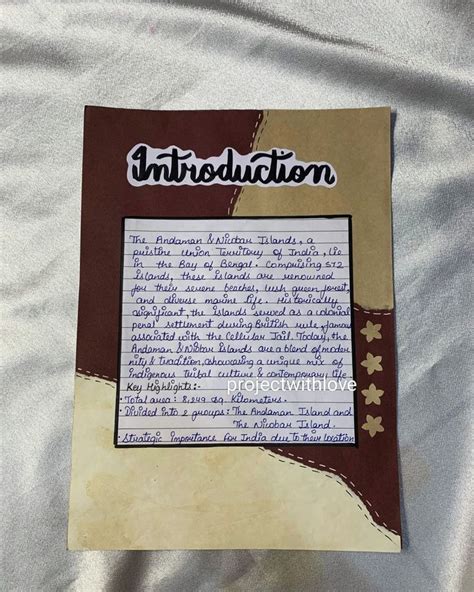 Introduction
The Andaman & Nicobar Islands, a
pristine Union Territory of India, lie
in the Bay of Bengal. Comprising 572
islands, these islands are renowned
for their serene beaches, lush green forest,
and diverse marine life. Historically
significant, the islands served as a colonial
penal settlement during British rule, famous
associated with the Cellular Jail. Today, the
Andaman & Nicobar Islands are a blend of moder
nity & tradition, showcasing a unique mix of
Indigenous tribal culture & contemporary life.
Key Highlights:-
projectwithlove
• Total area: 8,249 sq. Kilometers.
• Divided into 2 groups: The Andaman Island and
The Nicobar Island.
• Strategic Importance for India due to their location